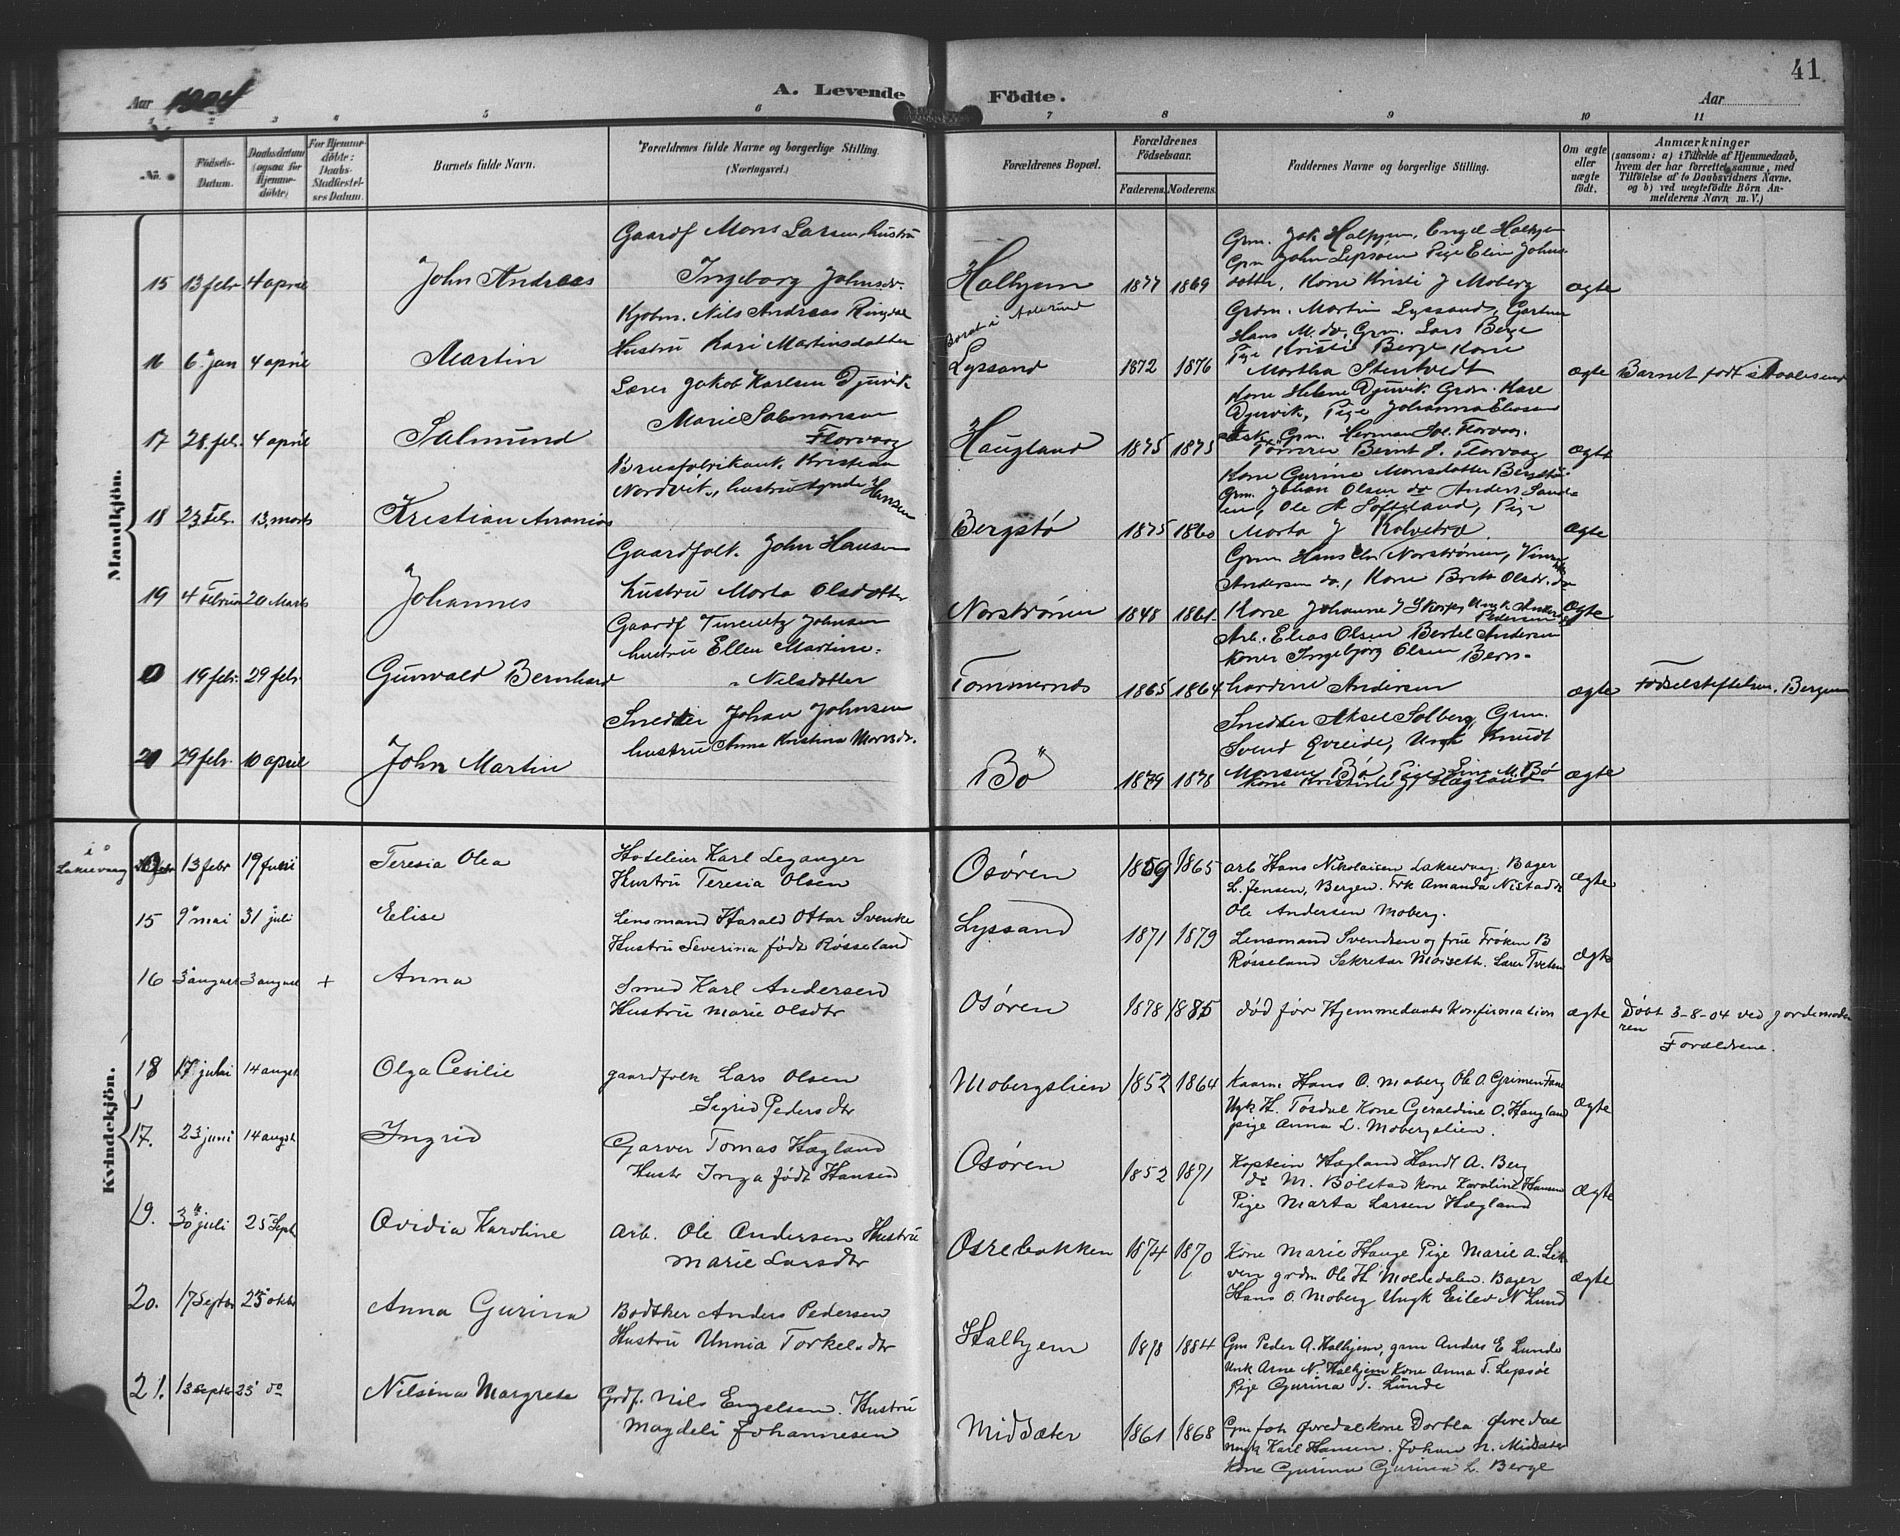 41
Aar 1904
A. Levende Födte.
Aar
1 2 3 4 5 6 7 8 9 10 11
No.
Födsels-Datum.
Daabsdatum (ogsaa for Hjemmedöbte)
For Hjemmedöbte: Daabs-Stadfæstelses Datum.
Barnets fulde Navn.
Forældrenes fulde Navne og borgerlige Stilling.
(Næringsvei.)
Forældrenes Bopæl.
Forældrenes Födselsaar.
Faderens. Moderens.
Faddernes Navne og borgerlige Stilling.
Om ægte eller uægte födt.
Anmærkninger
(saasom: a) i Tilfælde af Hjemmedaab, hvem der har forrettet samme, med Tilföielse af to Daabsvidners Navne. og b) ved uægtefödte Börn Anmelderens Navn m. V.)
Mandkjön.
Gaardf Mons Larsen, hustru
15 13 febr 4 april John Andreas Ingeborg Johnsdr.
Halhjem 1877 1869
Grm. Jak Halhjem, Engel Halhjem
Grm John Lepsöen Pige Elin Johns
datter, Kone Kristi J Moberg
ægte
Kjöbm. Nils Andreas Ringdal
16 6 jan 4 april Martin Hustru Kari Martinsdatter
Lyssand 1872 1876
Grdm. Martin Lyssand, Gartner
Hans M. do, Grm. Lars Berge
Pige Kristi Berge Kone
Martha Stentvedt
ægte Barnet födt i Aalesund
17 28 feb. 4 april Salmund
Lærer Jakob Karlsen Djuvik
Marie Salmonsen
Florvaag
Haugland 1875 1875
Kone Helene Djuvik. Grm. Kare
Djuvik, Pige Johanna Eliasen
Ask. Grm. Herman Sal. Florvaag.
Bernt J. Florvaag
ægte
18 23 Feb. 13, marts Kristian Ananias
Brusfabrikant. Kristian
Nordvik, hustru Agnete Hansen
Bergstö 1875 1860
Kone Gurine Monsdatter Bergstö
Grm. Johan Olsen do Anders Sand-
en, Ole A Softeland, Pige
Marta J Kolvetræ
ægte
19 4 Februar 20 Marts Johannes
Gaardfolk. John Hansen
hustru Marta Olsdatter
Norströnen 1848 1861
Grm Hans Norströnen,
Andersen do., Kone Brita Olsdr. do
Kone Johanne J Skorpen Ungk Anders
Pedersen
ægte
19 febr. 29 febr. Gunvald Bernhard
Gaardf Johnsen
hustru Ellen Martine
Nilsdatter
Tömmernes 1865 1864
Arb. Elias Olsen Bertel Andersen
koner Ingebjörg Olsen Bern-
hardine Andersen
ægte Födselstiftelsen. Bergen
21 29 febr. 10 april John Martin
Snedker Johan Johnsen
hustru Anna Kristina Monsdr.
Bö 1879 1878
Snedker Aksel Solberg, Grm.
Svend Qvreide, Ungk Knudt
Monsen Bö Pige Lina M. Bö
Kone Kristi Hægland
ægte
Kvindekjön.
i Laksevaag
13 febr 19 juni Teresia Olea
Hoteleier Karl Leganger
Hustru Teresia Olsen
Osören 1869 1865
arb Hans Nikolaisen Laksevaag. Bager
L. Jensen, Bergen. Frk Amanda Nistad
Ole Andersen Moberg.
ægte
15 9 mai 31 juli Elise
Lensmand Harald Ottar Svenke
Hustru Severina födt Rösseland
Lyssand 1871 1879
Lensmand Svendsen og frue Fröken B
Rösseland Sekretær Morseth. Lærer Tveten
ægte
16 3 august 3 august + Anna
Smed Karl Andersen
Hustru Marie Olsdtr
Osören 1878 1885
död för Hjemmedaabs Konfirmation
ægte
Döbt 3-8-04 ved jordemode
ren
Forældrene.
18 17 juli 14 augst Olga Cesilie
gaardfolk Lars Olsen
Sigrid Pedersdtr
Mobergslien 1852 1864
Kaarm Hans O. Moberg Ole O. Grimen Fane
Ungk H. Tösdal Kone Geraldine O. Haugland
pige Anna L. Mobergslien.
ægte
17. 23 juni 14 augst Ingrid
Garver Tomas Hægland
Hustr Inga födt Hansen
Osören 1852 1871
Kaptein Hægland Handl A. Berg
do M. Bölstad Kone Karoline Hansen
Pige Marta Larsen Hægland
ægte
19. 30 juli 25 Sept Ovidia Karoline
Arb. Ole Andersen Hustru
Marie Larsdtr
Osrebakken 1874 1870
Kone Marie Hauge Pige Marie A. Lek
ven grdm Ole H Moldedalen. Bager
Hans O. Moberg Ungk Eilev N Lund
ægte
20. 17 Septbr 23 oktbr Anna Gurina
Bödtker Anders Pedersen
Hustru Unnia Torkelsdtr
Halhjem 1878 1884
Gm Peder A. Halhjem, grm Anders E Lunde
Unk Arne N. Halhjem Kone Anna T. Lepsöe
Pige Gurina T. Lunde
21. 13 septbr 23 do Nilsina Margrete
Grdf. Nils Engelsen. Hustru
Magdeli Johannesen
Midsæter 1861 1868
Gm Joh Övredal kone Dortea Övredal
Ungk Karl Hansen. Johan N. Midsæter
Kone Gurina Gurina L. Berge